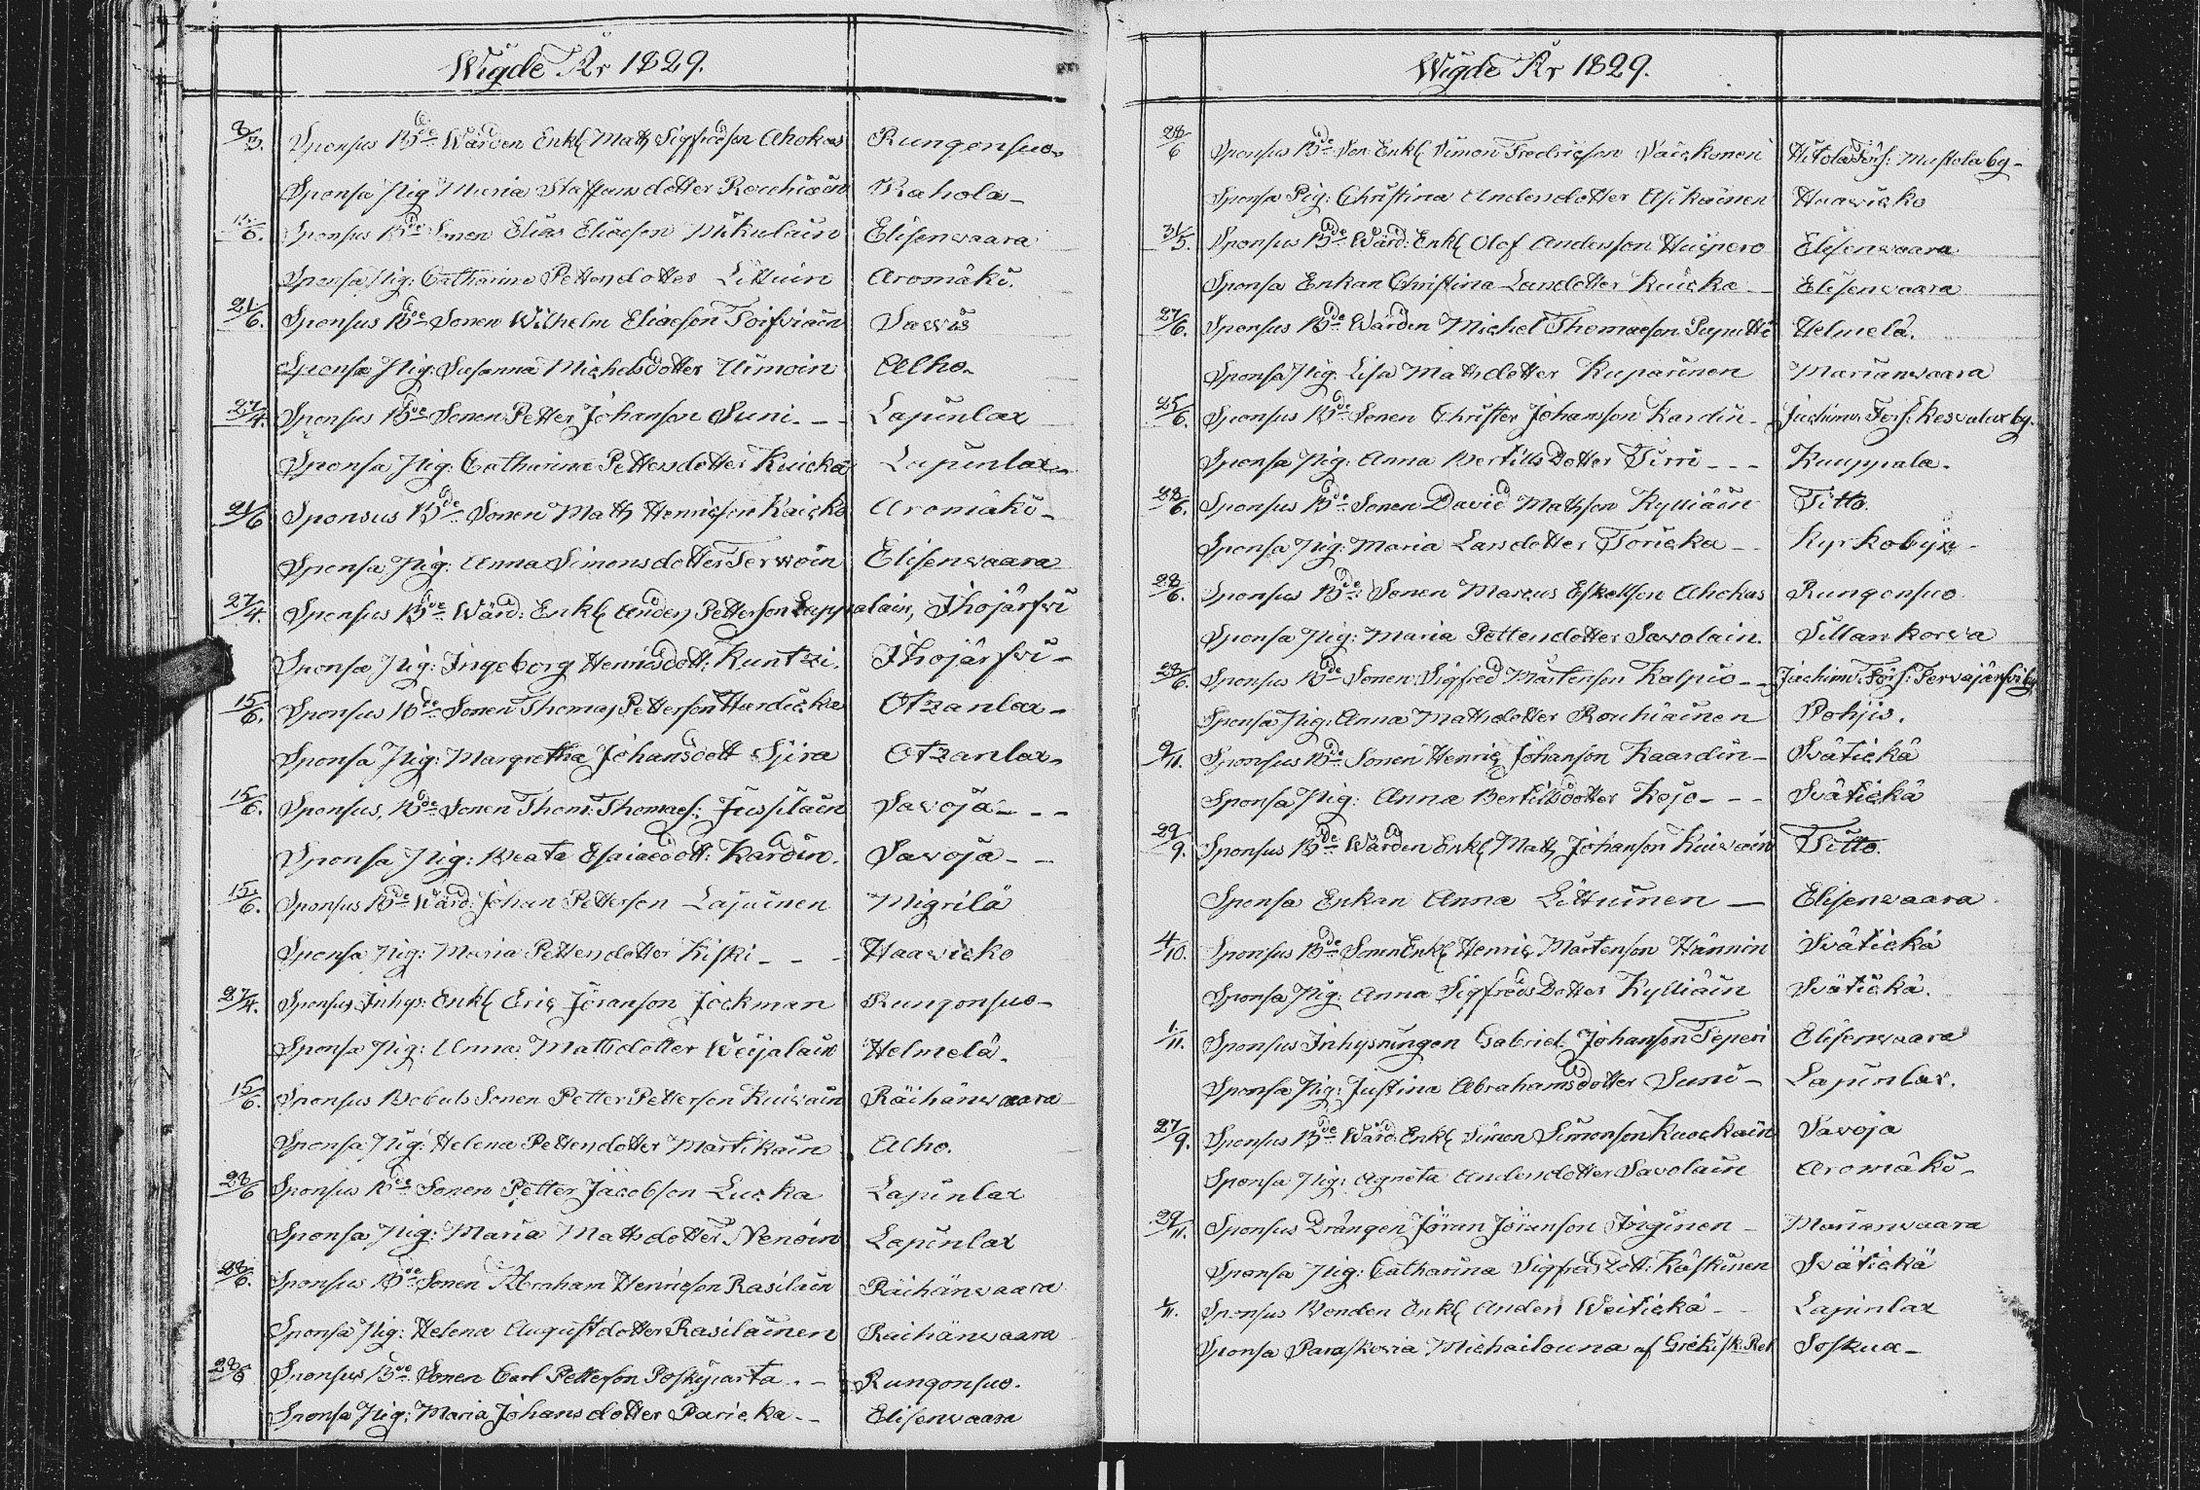 Wigde År 1829.
8/3. Sponsus Bde Wärden Enkl Matts Sigfridsson Ahokas Rungonsuo
Sponsa Pig: Maria Staffansdotter Rouhiain Rahola
Sponsus Bde Sonen Elias Eliaeson Mikulain Elisenwaara
Sponsa Pig: Catharina Pettersdotter Littuin Aromäki.
21/6. Sponsus Bde Sonen Wilhelm Eliaeson Toifviain Sawis
Sponsa Pig: Susanna Michelsdotter Uimoin Alho
27/4. Sponsus Bde Sonen Petter Johanson Suni - - Lapinlax
Sponsa Pig: Catharina Pettersdotter Kuicka Lapinlax
21/6 Sponsus Bde Sonen Matts Henricson Kaicko Aromäki
Sponsa Pig: Anna Simonsdotter Terwoin Elisenwaara
27/4. Sponsus Bde Wärd: Enkl Anders Petterson Lappalain, Ihojärfvi
Sponsa Pig: Ingeborg Henricsdott: Kuntzi. Ihojärfvi
15/6. Sponsus Bde Sonen Thomas Petterson Hardicka Otzanlax
Sponsa Pig: Margretha Johansdott Sjira Otzanlax
15/6. Sponsus Bde Sonen Thom: Thomaes: Jussilain Savoja - - -
Sponsa Pig: Beata Esaiaedott: Kardin. Savoja - -
15/6. Sponsus Bde Wärd: Johan Petterson Lajuinen Migrilä
Sponsa Pig: Maria Pettersdotter Kiski - - - Haawicko
27/4. Sponsus Inhys: Enkl Eric Jöranson Jockman Rungonsuo
Sponsa Pig: Anna Matsdotter Weijalain Helmelä.
15/6. Sponsus Bobuls Sonen Petter Petterson Kuiwain Räihänwaara
Sponsa Pig: Helena Pettersdotter Martikain Alho.
28/6 Sponsus Bde Sonen Petter Jacobson Lucka Lapinlax
Sponsa Pig: Maria Matsdotter Nenoin Lapinlax
28/6. Sponsus Bde Sonen Abraham Henricson Rasilain Räihänwaara
Sponsa Pig: Helena Augustdotter Rasilainen Räihänwaara
28/6 Sponsus Bde Sonen Carl Petterson Poskijarta - - Rungonsuo.
Sponsa Pig: Maria Johansdotter Paricka - - Elisenwaara
Wigde År 1829.
28/6 Sponsus Bde Son Enkl Simon Fredricson Väickonen Hitola Förs: Mustola by
Sponsa Pig: Christina Andersdotter Asikainen Haawicko
31/5. Sponsus Bde Wärd: Enkl Olof Andersson Huipero Elisenwaara
Sponsa Enkan Christina Larsdotter Kuicka Elisenwaara
27/6. Sponsus Bde Wärden Michel Thomaeson Puputti Helmelä.
Sponsa Pig: Lisa Matsdotter Kuparinen Marianwaara
25/6. Sponsus Bde Sonen Christer Johansson Kardin Jackima Förs: Kesvalax by.
Sponsa Pig: Anna Bertills Dotter Tirri - - - Kuuppala.
28/6. Sponsus Bde Sonen David Matsson Kylliäin Titto.
Sponsa Pig: Maria Larsdotter Toricka - - Kyrkobyn
28/6. Sponsus Bde Sonen Marcus Eskelson Ahokas Rungonsuo
Sponsa Pig: Maria Pettersdotter Savolain Sillankorva
28/6. Sponsus Bde Sonen Sigfred Mårtenson Kalpio - - Jackima Förs: Tervajärfvi by
Sponsa Pig: Anna Matsdotter Rouhiainen Pohjis.
9/11. Sponsus Bde Sonen Henric Johanson Kaardin Svätickä
Sponsa Pig: Anna Bertilsdotter Kojo - - - Svätickä
29/9. Sponsus Bde Wärden Enkl Matts Johanson Kuiwain Titto.
Sponsa Enkan Anna Littuinen — Elisenwaara
4/10. Sponsus Bde Sonen Enkl Henric Mårtenson Hännin Svätickä
Sponsa Pig: Anna Sigfreds Dotter Kylliäin Svätickä.
1/11. Sponsus Inhysningen Gabriel Johanson Teperi Elisenwaara
Sponsa Pig: Justina Abrahamsdotter Suni Lapinlax.
27/9. Sponsus Bde Wärd: Enkl Simon Simonson Kuockain Savoja
Sponsa Pig: Agneta Andersdotter Savolain Aromäki
29/11. Sponsus Drängen Jöran Jöranson Inginen Marianwaara
Sponsa Pig: Catharina Sigfreds Dott: Käskinen Svätickä
1/11. Sponsus Bonden Enkl Anders Weitickä Lapinlax
Sponsa Paraskovia Michailouna af Grekisk: Rel Soskua